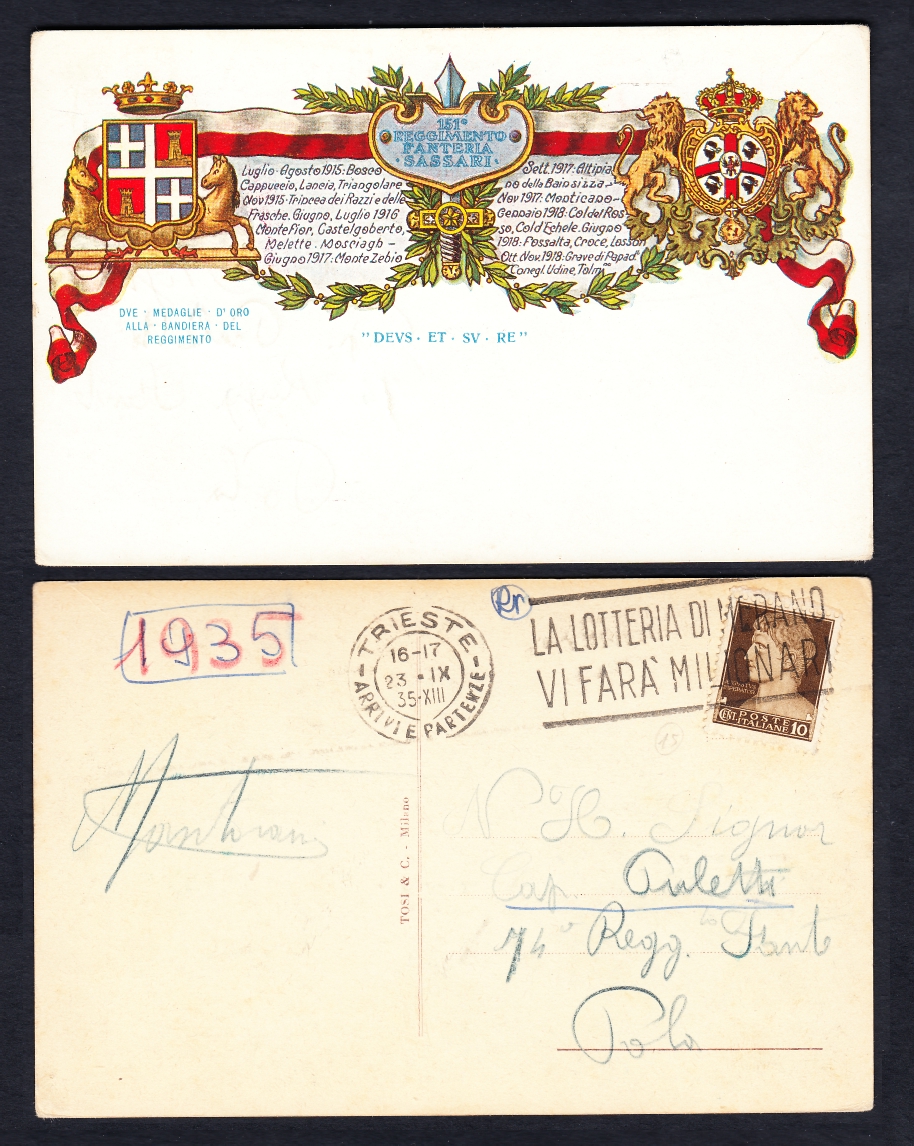 151°
REGGIMENTO
FANTERIA
· SASSARI ·
Luglio-Agosto 1915: Bosco
Cappuccio, Lancia, Triangolare
Nov 1915: Trincea dei Razzi e delle
Frasche. Giugno, Luglio 1916
Monte Fior, Castelgoberto,
Melette. Mosciagh -
Giugno 1917: Monte Zebio
Sett. 1917: Altipia-
no della Bainsizza -
Nov 1917: Monticano -
Gennaio 1918: Col del Ros-
so, Col d'Echele. Giugno
1918: Fossalta, Croce, Losson
Ott. Nov. 1918: Grave di Papad
Conegl. Udine, Tolm
DVE · MEDAGLIE · D'ORO
ALLA · BANDIERA · DEL
REGGIMENTO
"DEVS · ET · SV · RE"
1935
TRIESTE
16-17
23 - IX
35-XIII
ARRIVI E PARTENZE
Rr
LA LOTTERIA DI MERANO
VI FARÀ MILIONARI
CENT. POSTE ITALIANE 10
15
TOSI & C. - Milano
N. H. Signor
Cap. Puletti
74° Regg.to Fant
Pola